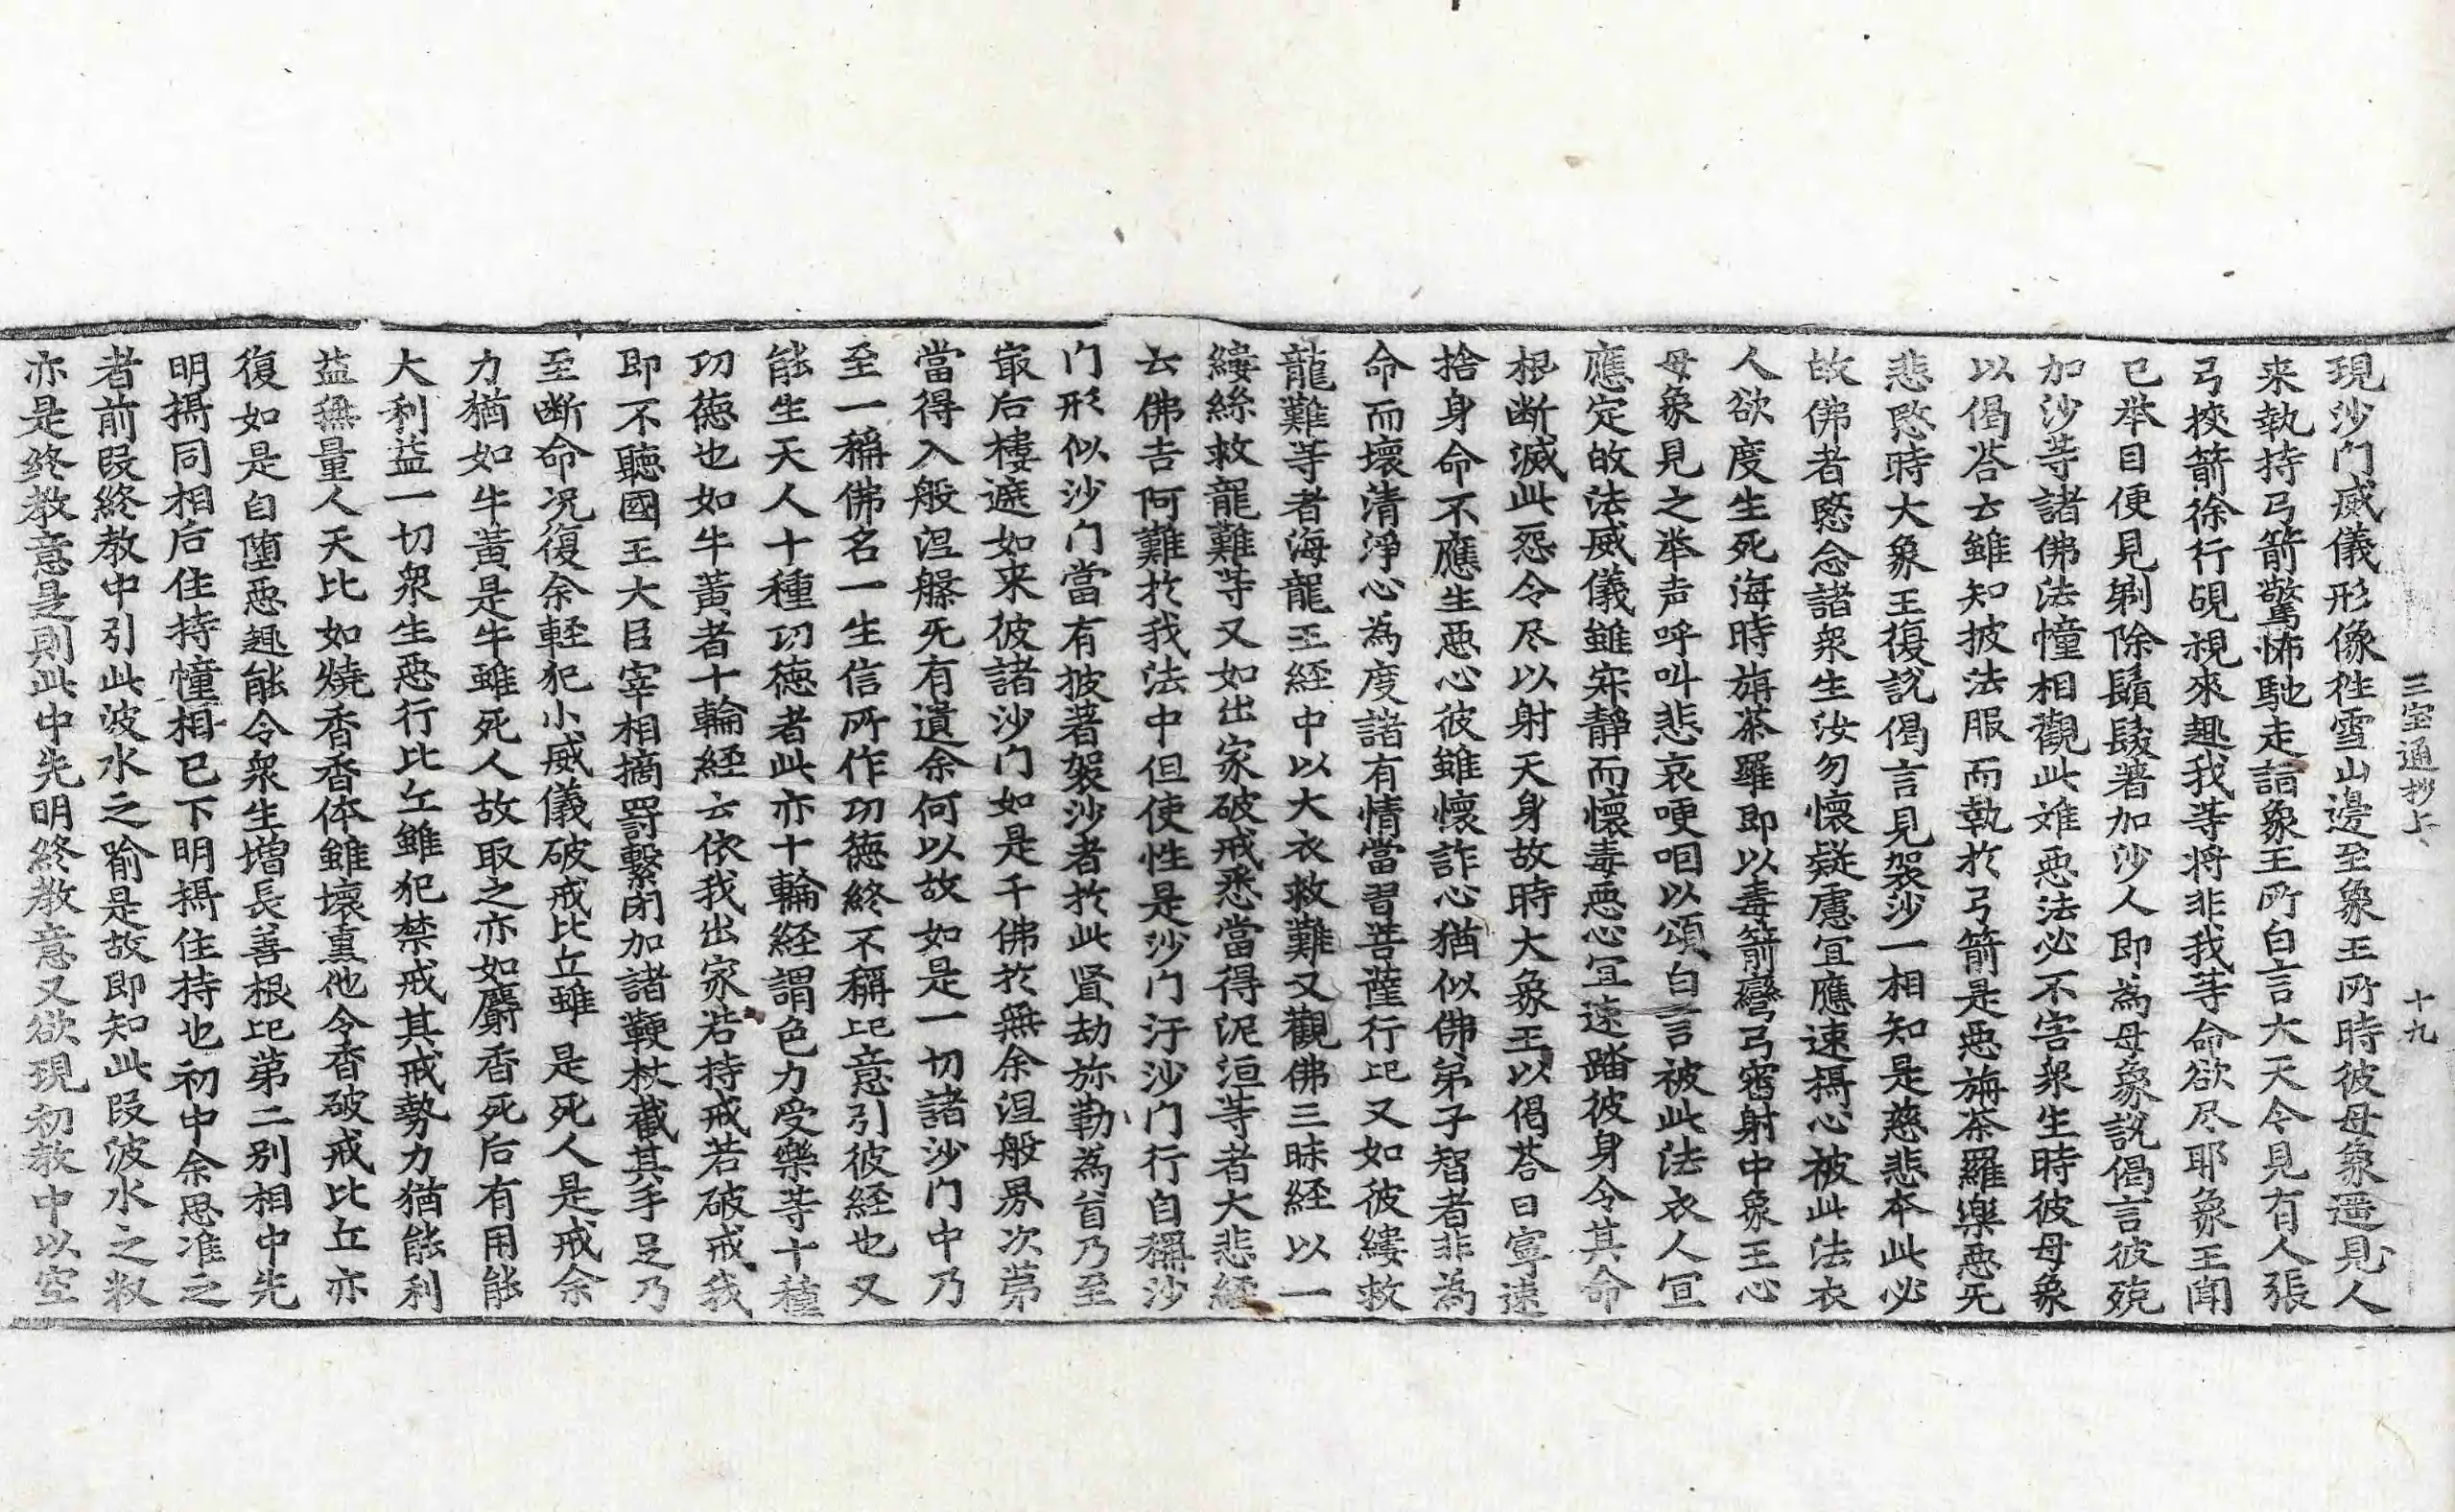 三宝通抄上 十九
現沙门威儀形像徃雪山邊至象王所時彼母象遥見人
来執持弓箭驚怖馳走詣象王所白言大天今見有人張
弓挾箭徐行覘視來趣我等将非我等命欲尽耶象王聞
已举目便見剃除鬚髮著加沙人即為母象說偈言彼殑
加沙等諸佛法幢相觀此难惡法必不害衆生時彼母象
以偈荅云雖知披法服而執於弓箭是惡旃荼羅樂惡无
悲愍時大象王復說偈言見袈沙一相知是慈悲本此必
故佛者愍念諸衆生汝勿懷疑慮冝應速攝心被此法衣
人欲度生死海時旃荼羅即以毒箭彎弓審射中象王心
母象見之举声呼叫悲哀哽咽以頌白言被此法衣人冝
應定故法威儀雖寂靜而懷毒惡心冝速踏彼身令其命
根断滅此怨令尽以射天身故時大象王以偈荅曰寧速
捨身命不應生惡心彼雖懷詐心猶似佛弟子智者非為
命而壞清淨心為度諸有情當習菩薩行記又如彼縷救
龍難等者海龍王経中以大衣救難又觀佛三昧経以一
縷絲救龍難等又如出家破戒悉當得泥洹等者大悲經
云佛告阿難於我法中但使性是沙门汙沙门行自稱沙
门形似沙门當有披著袈沙者於此賢劫弥勒為首乃至
㝡后樓遮如来彼諸沙门如是千佛於無余涅般㝵次第
當得入般涅槃无有遺余何以故如是一切諸沙门中乃
至一稱佛名一生信所作功德終不稱記意引彼経也又
能生天人十種功徳者此亦十輪経謂色力受樂等十種
功徳也如牛黃者十輪經云依我出家若持戒若破戒我
即不聴國王大臣宰相擿罸繫闭加諸鞕杖截其手足乃
至断命况復余軽犯小威儀破戒比丘雖是死人是戒余
力猶如牛黃是牛雖死人故取之亦如麝香死后有用能
大利益一切衆生惡行比丘雖犯禁戒其戒勢力猶能利
益無量人天比如燒香香体雖壞熏他令香破戒比丘亦
復如是自墮惡趣能令衆生増長善根記第二别相中先
明攝同相后住持幢相已下明攝住持也初中余思准之
者前段終教中引此波水之喻是故即知此段波水之教
亦是终教意是則此中先明終教意又欲現初教中以空